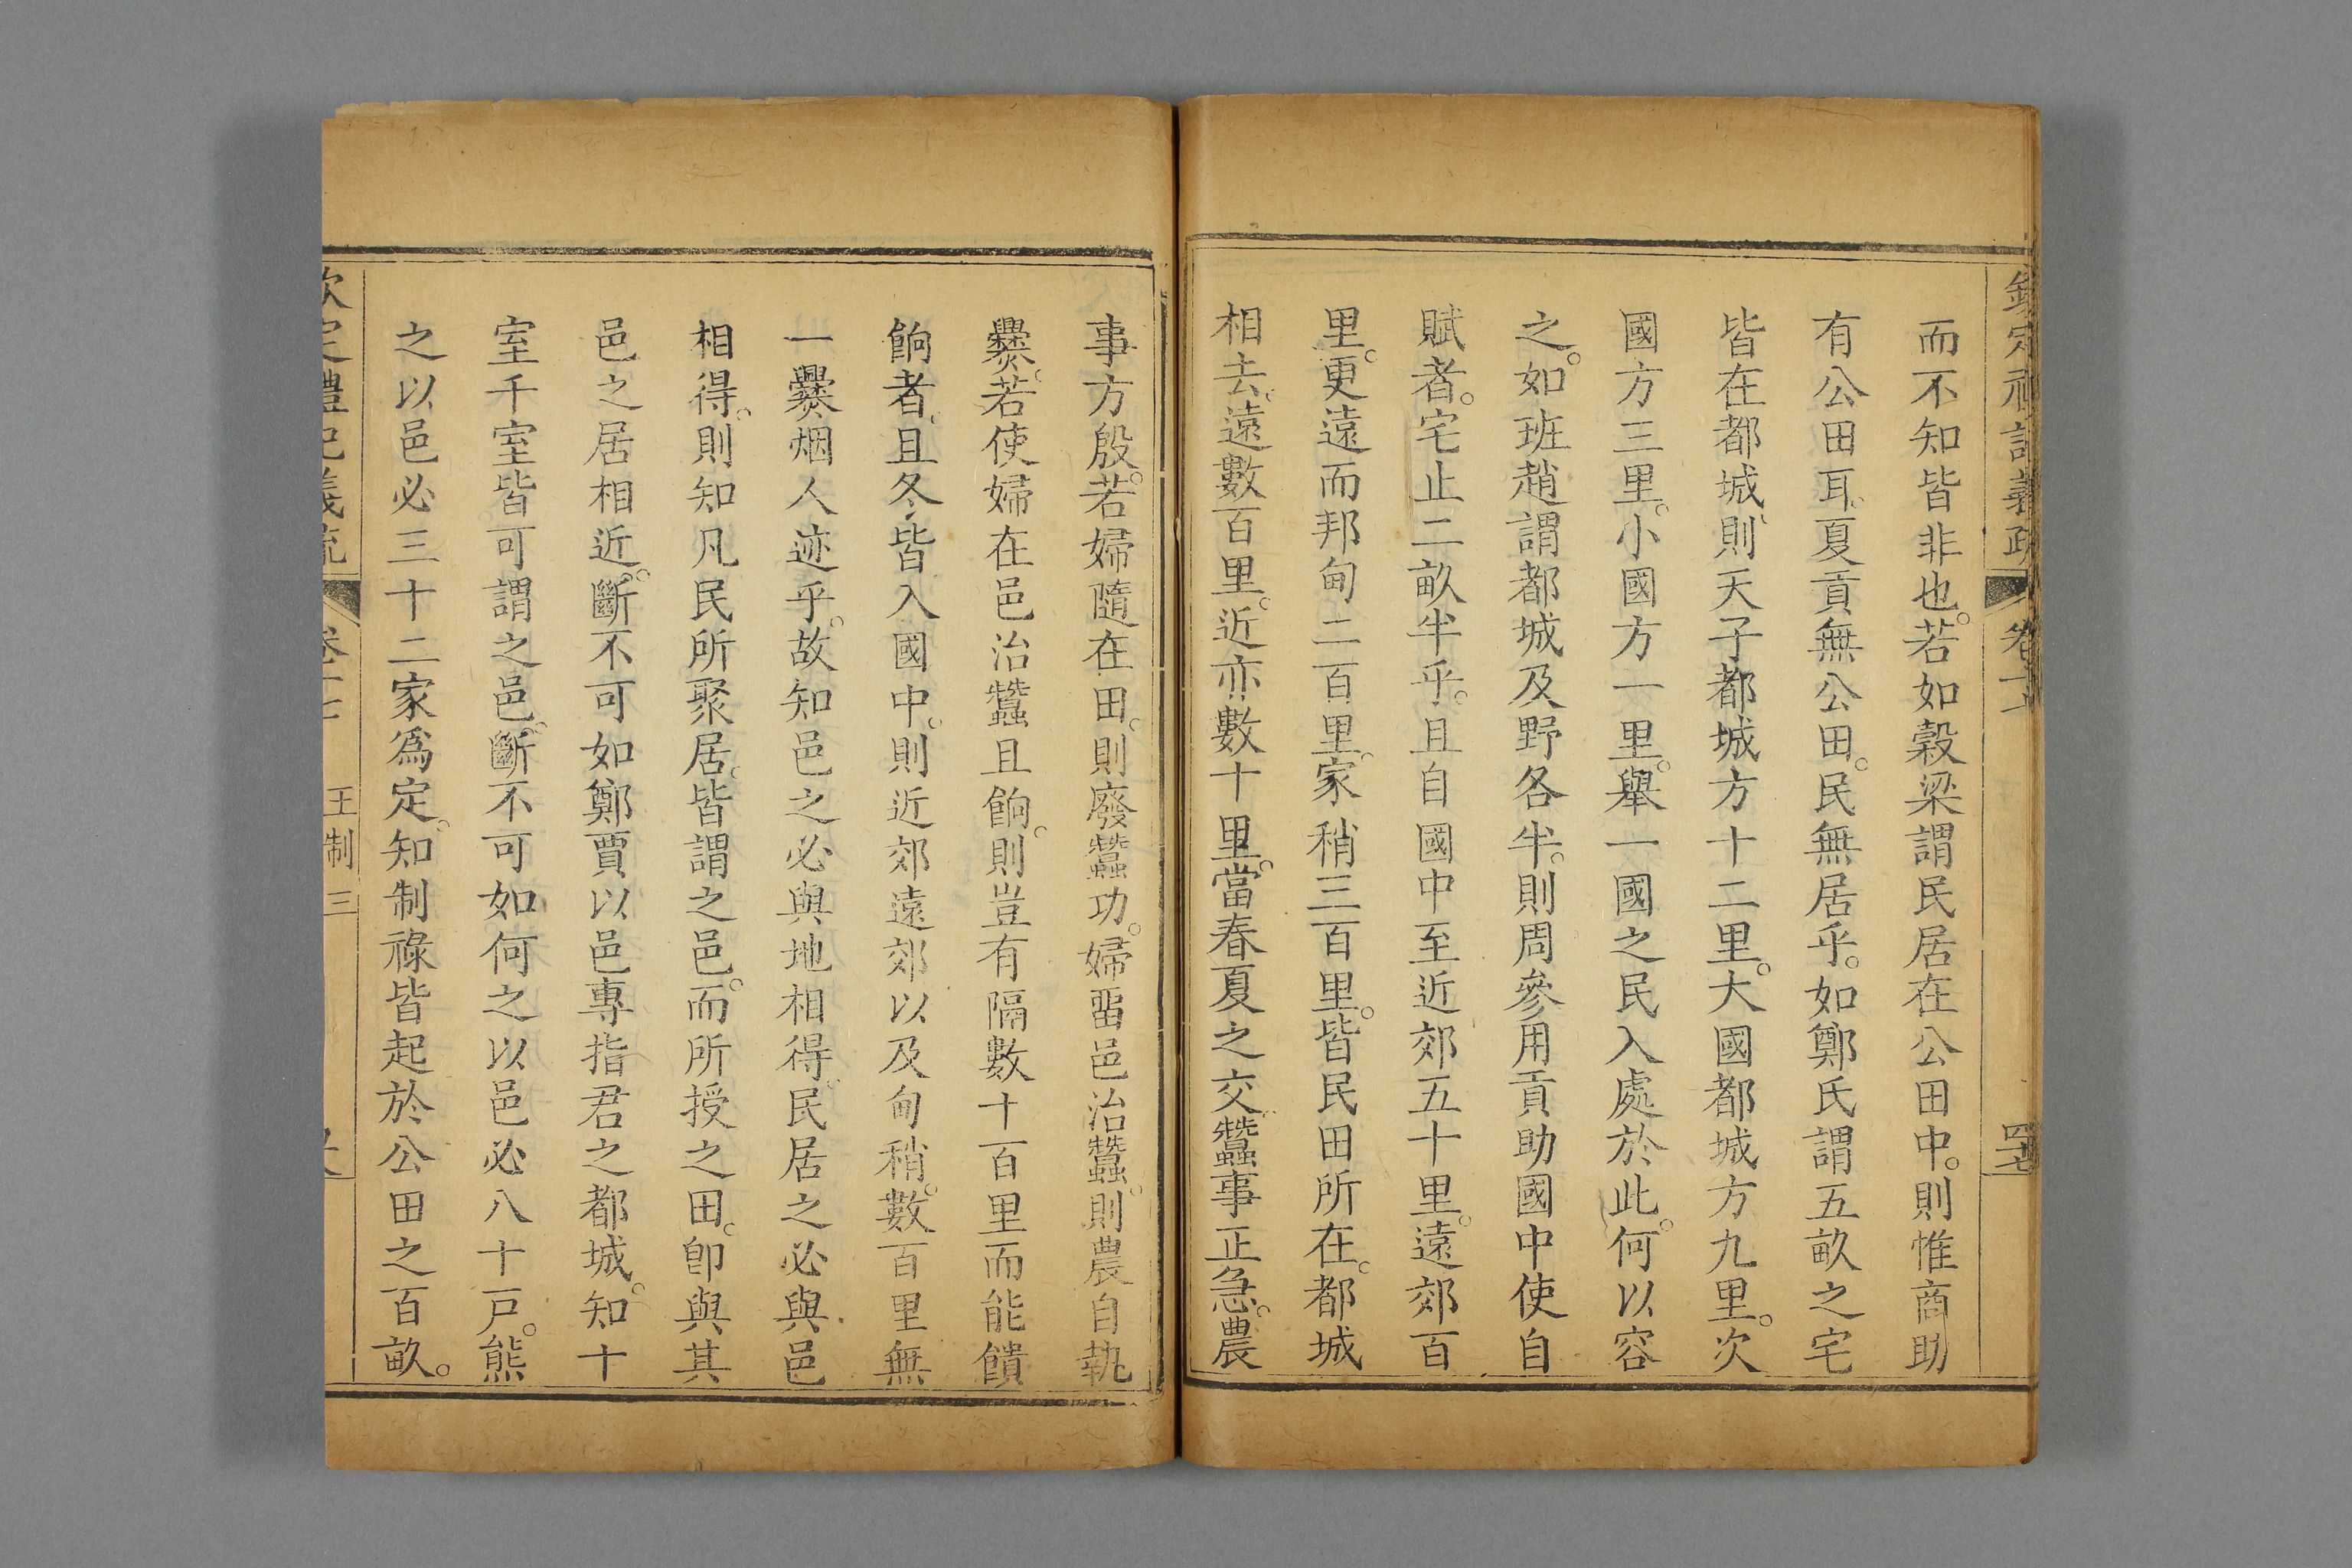 欽定禮記義疏 卷十七 四七
而不知皆非也。若如穀梁謂民居在公田中。則惟商助
有公田耳、夏貢無公田。民無居乎。如鄭氏謂五畝之宅
皆在都城、則天子都城方十二里。大國都城方九里。次
國方三里。小國方一里。舉一國之民入處於此。何以容
之。如班趙謂都城及野各半。則周參用貢助國中使自
賦者。宅止二畝半乎。且自國中至近郊五十里。遠郊百
里。更遠而邦甸二百里。家稍三百里。皆民田所在。都城
相去、遠數百里。近亦數十里。當春夏之交、蠶事正急。農
事方殷。若婦隨在田。則廢蠶功。婦畱邑治蠶。則農自執
爨。若使婦在邑治蠶且餉。則豈有隔數十百里而能饋
餉者、且冬皆入國中。則近郊遠郊以及甸稍。數百里無
一爨烟人迹乎。故知邑之必與地相得、民居之必與邑
相得。則知凡民所聚居。皆謂之邑。而所授之田。卽與其
邑之居相近。斷不可如鄭賈以邑專指君之都城。知十
室千室皆可謂之邑。斷不可如何之以邑必八十戸。熊
之以邑必三十二家爲定。知制祿皆起於公田之百畝。
欽定禮記義疏 卷十七 王制 三